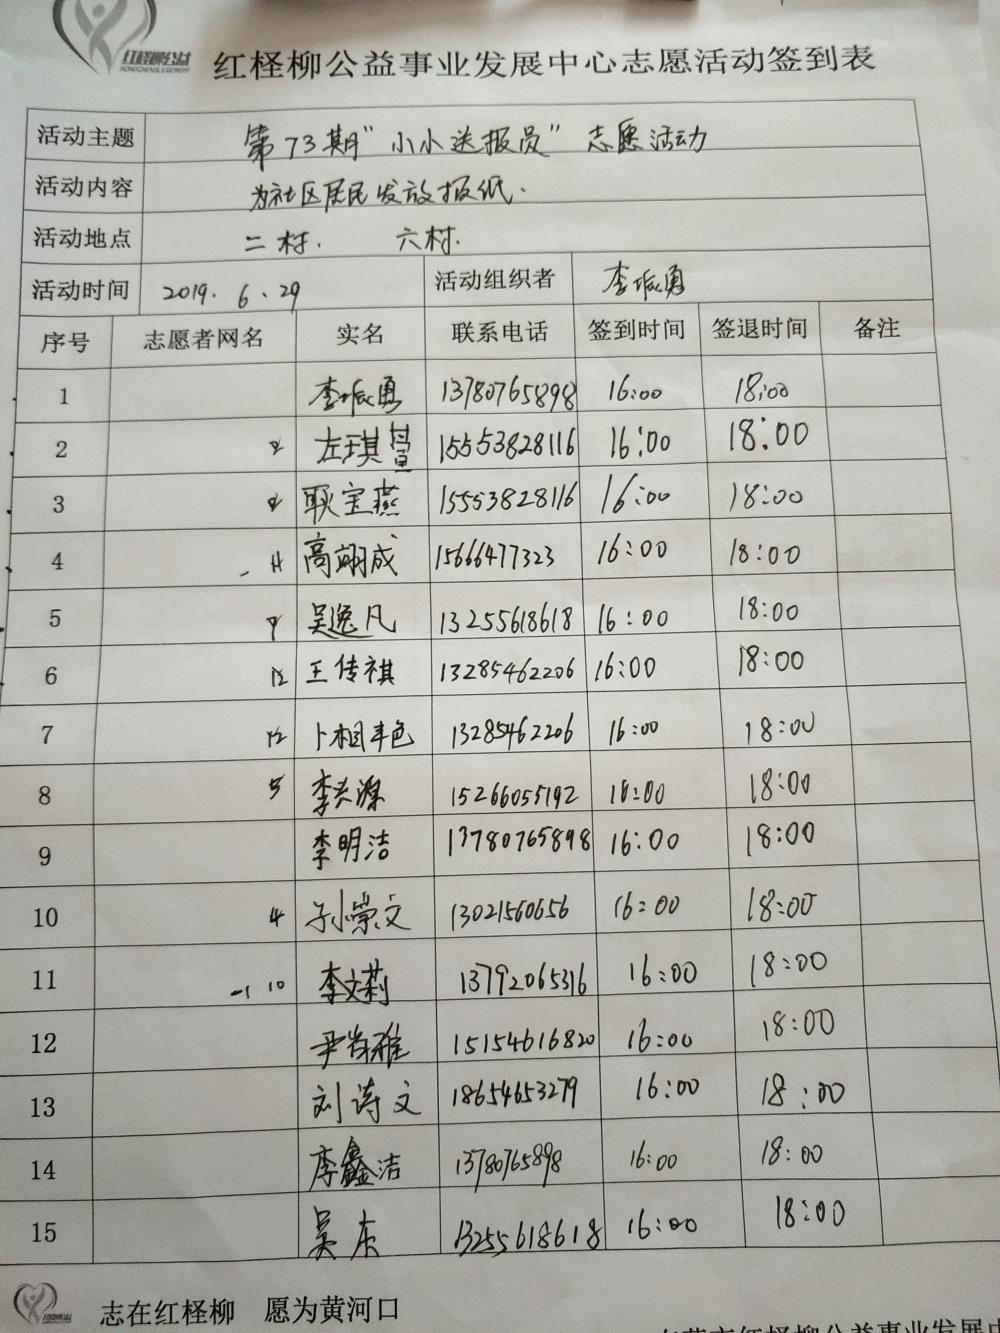 红柽柳公益
红柽柳公益事业发展中心志愿活动签到表
活动主题 第73期"小小送报员"志愿活动
活动内容 为社区居民发放报纸.
活动地点 二村. 六村.
活动时间 2019.6.29 活动组织者 李振勇
序号 志愿者网名 实名 联系电话 签到时间 签退时间 备注
1 李振勇 13780765898 16:00 18:00
2 左琪萱 15553828116 16:00 18:00
3 耿宝燕 15553828116 16:00 18:00
4 高翊成 15666477323 16:00 18:00
5 吴逸凡 13255618618 16:00 18:00
6 12 王传祺 13285462206 16:00 18:00
7 12 卜相丰色 13285462206 16:00 18:00
8 5 李兴源 15266055192 16:00 18:00
9 李明洁 13780765898 16:00 18:00
10 4 孙崇文 13021560656 16:00 18:00
11 10 李文莉 13792065316 16:00 18:00
12 15154616820 16:00 18:00
13 刘诗文 18654653279 16:00 18:00
14 李鑫洁 13780765898 16:00 18:00
15 吴东 13255618618 16:00 18:00
志在红柽柳 愿为黄河口